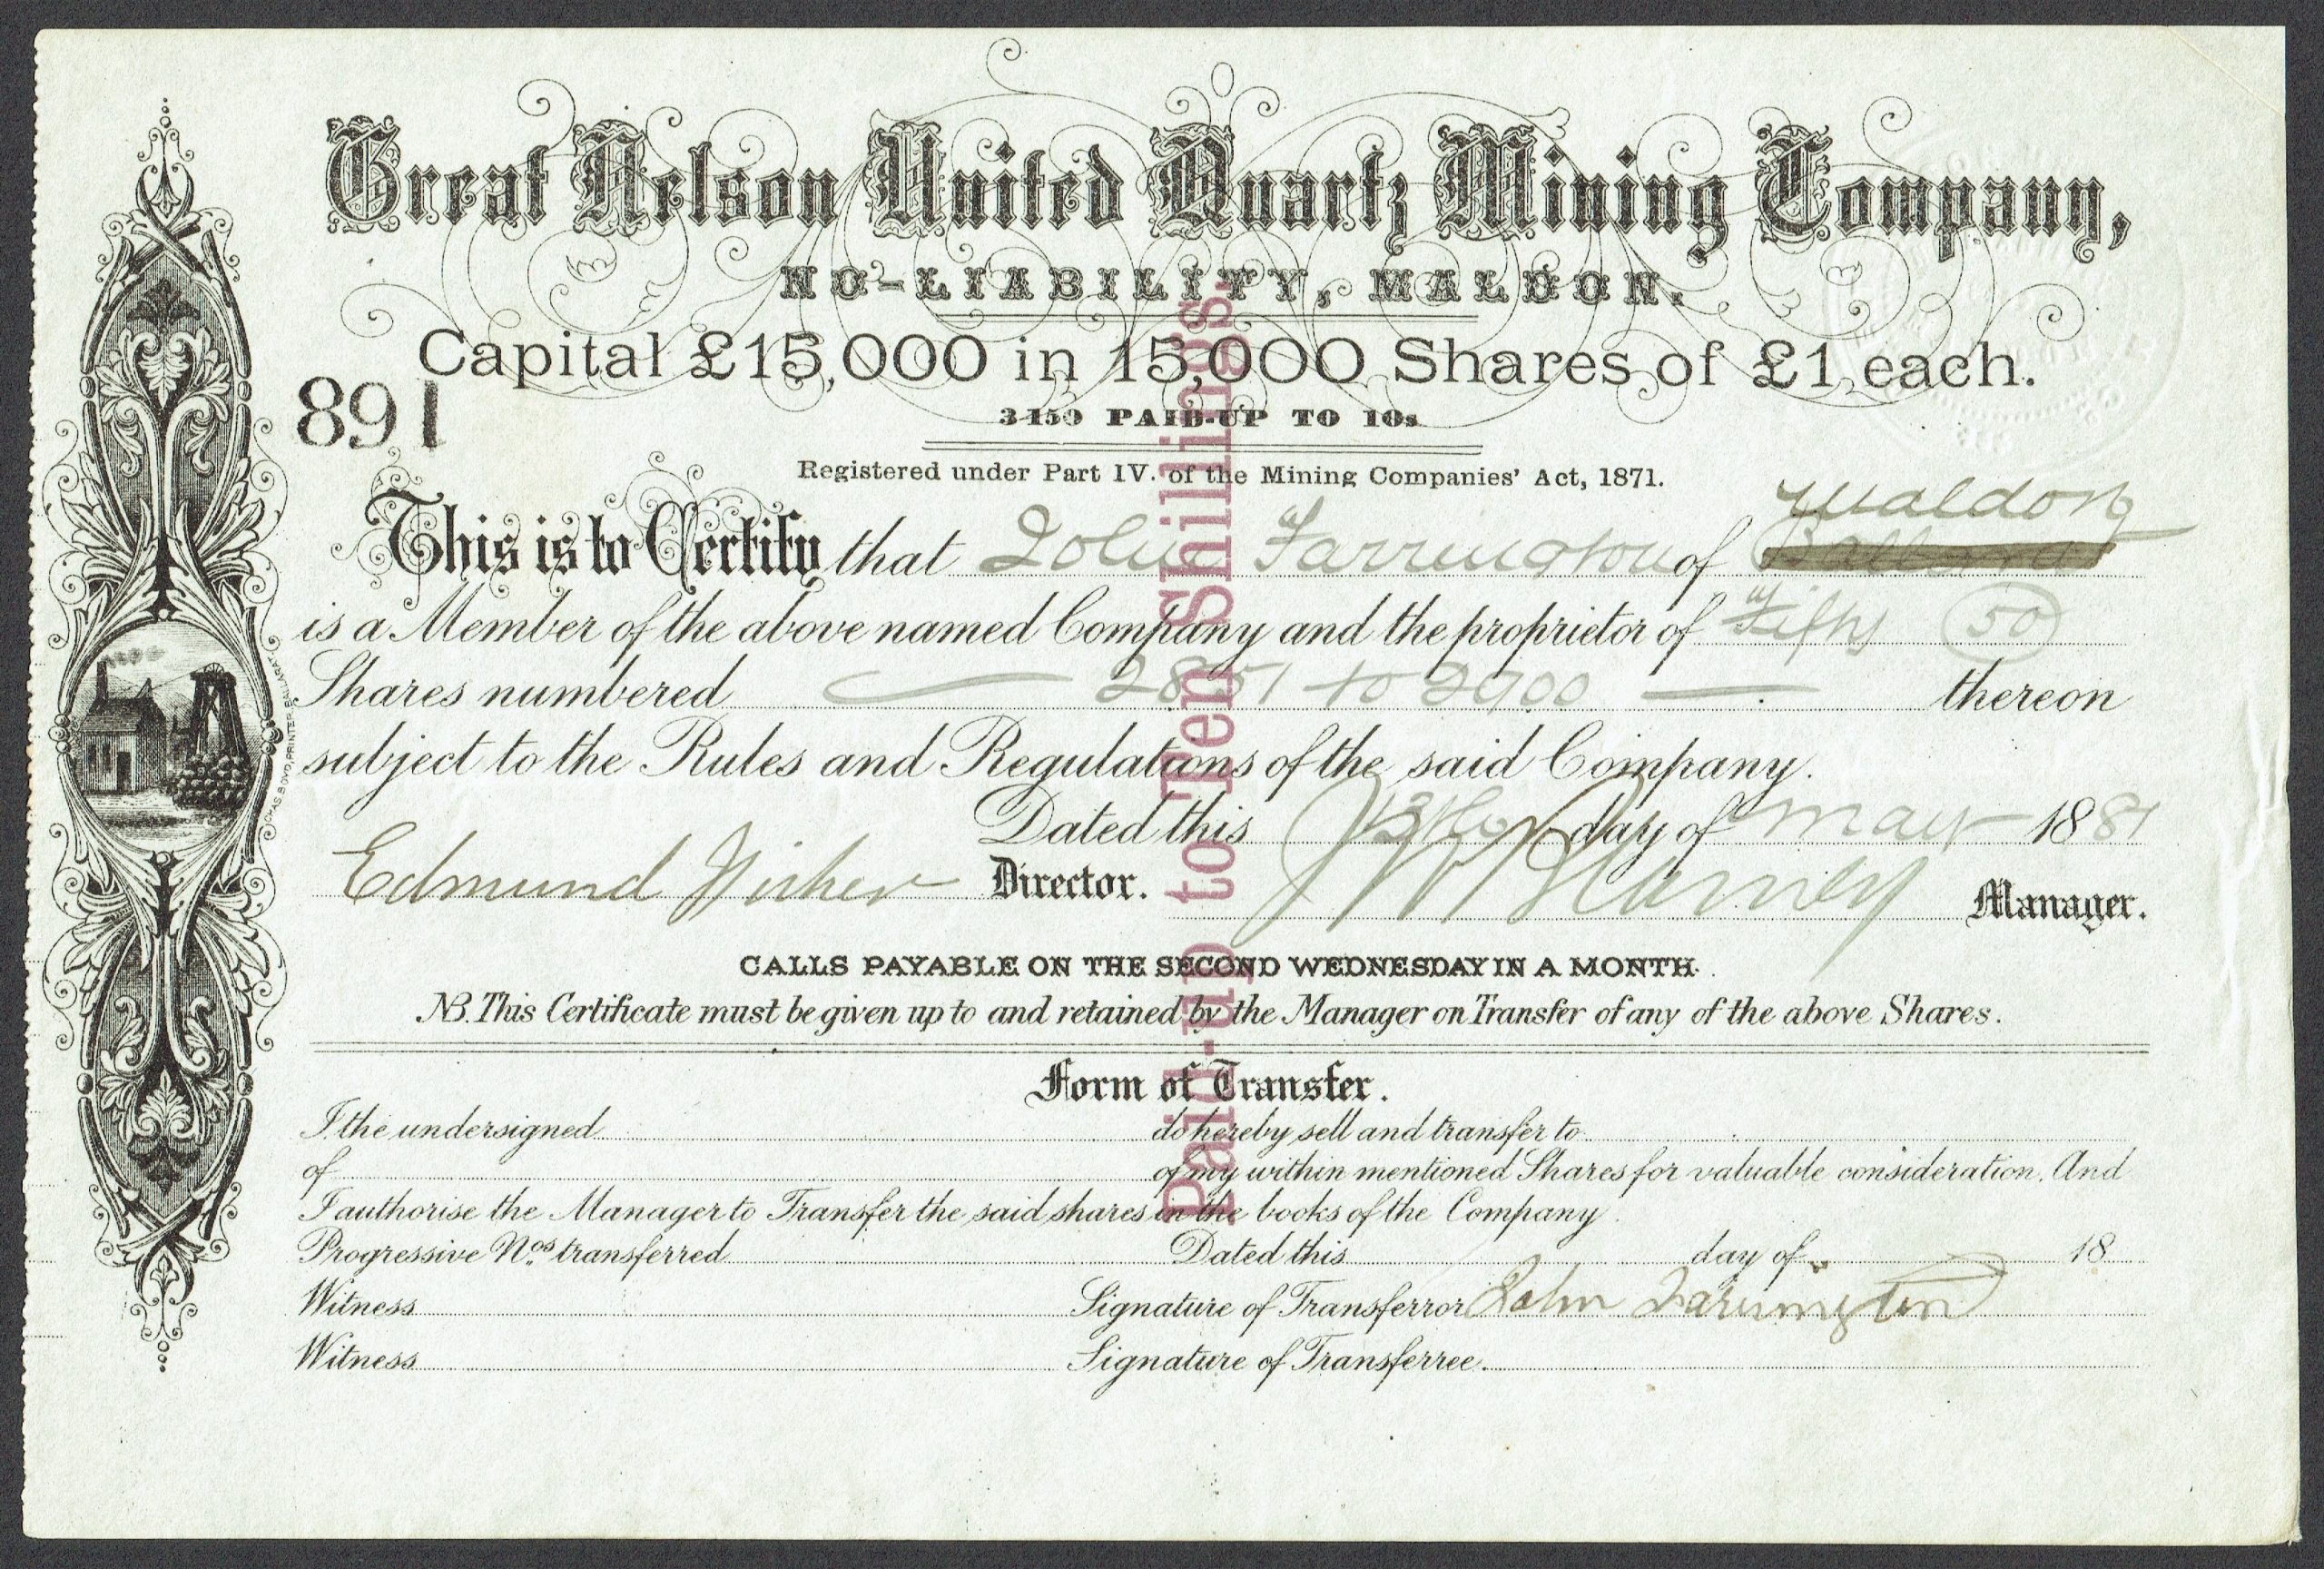 Great Nelson United Quartz Mining Company,
NO-LIABILITY, MALDON.
Capital £15,000 in 15,000 Shares of £1 each.
891
3450 PAID-UP TO 10s
Registered under Part IV. of the Mining Companies' Act, 1871.
Maldon
This is to Certify that John Farrington of
is a Member of the above named Company and the proprietor of Fifty 50
Shares numbered 2851 to 2900 thereon
subject to the Rules and Regulations of the said Company.
Dated this 13th day of May 1881
Edmund Fisher Director. Manager.
CALLS PAYABLE ON THE SECOND WEDNESDAY IN A MONTH.
NB. This Certificate must be given up to and retained by the Manager on Transfer of any of the above Shares.
Form of Transfer.
I the undersigned do hereby sell and transfer to
of of my within mentioned Shares for valuable consideration. And
I authorise the Manager to Transfer the said shares in the books of the Company.
Progressive Nos. transferred Dated this day of 18
Witness Signature of Transferror John Farrington
Witness Signature of Transferree.
Paid-up to Ten Shillings.
CHAS. BOYD, PRINTER, BALLARAT